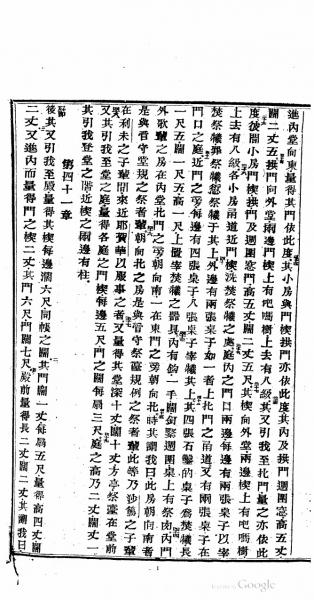 進內堂向東量得其門依此度其小房與門楔拱門亦依此度其內及拱門週圍窓高五丈
闊二丈五拱門向外堂兩邊門楔上有吧嗎樹上去有八級其又引我至北門量之亦依此
度彼間小房門楔拱門及週圍窓門高五丈闊二丈五尺其楔向外堂兩邊門楔上有吧嗎樹
上去有八級各小房甬道近門楔洗焚祭犧之處庭內之門口兩邊每邊有兩張桌子以宰
焚祭犧罪祭犧愆祭犧于其上外邊有兩張桌子如一者上北門之甬道又有兩張桌子在
門口之庭近門之旁每邊有四張桌子八張桌子宰犧其上其四張石鑿的桌子為焚犧長
一尺五闊一尺五高一尺上置宰焚犧之器具內有鈎一手闊釘緊週圍桌上有祭肉內門
外歌輩之房在內堂北門之旁朝向南一在東門之旁朝向北時其謂我曰此房朝向南者
是與看守堂規之祭者輩朝向北之房是與看守祭臺規例之祭者輩此等乃沙篤之子輩
在利未之子輩間來近耶賀華以服事之者又量得其堂深十丈闊十丈方亭祭臺在堂前
其又引我至堂之庭量得各庭之門楔每邊五尺門之闊每扇三尺庭之高乃二丈闊一丈一
其引我登堂之階近楔之兩邊有柱
第四十一章
後其又引我至殿量得其楔每邊闊六尺同帳之闊其門闊一丈每扇五尺量得高四丈闊
二丈又進內而量得門之楔二丈其門六尺門闊七尺殿前量得長二丈闊二丈其謂我曰
Google